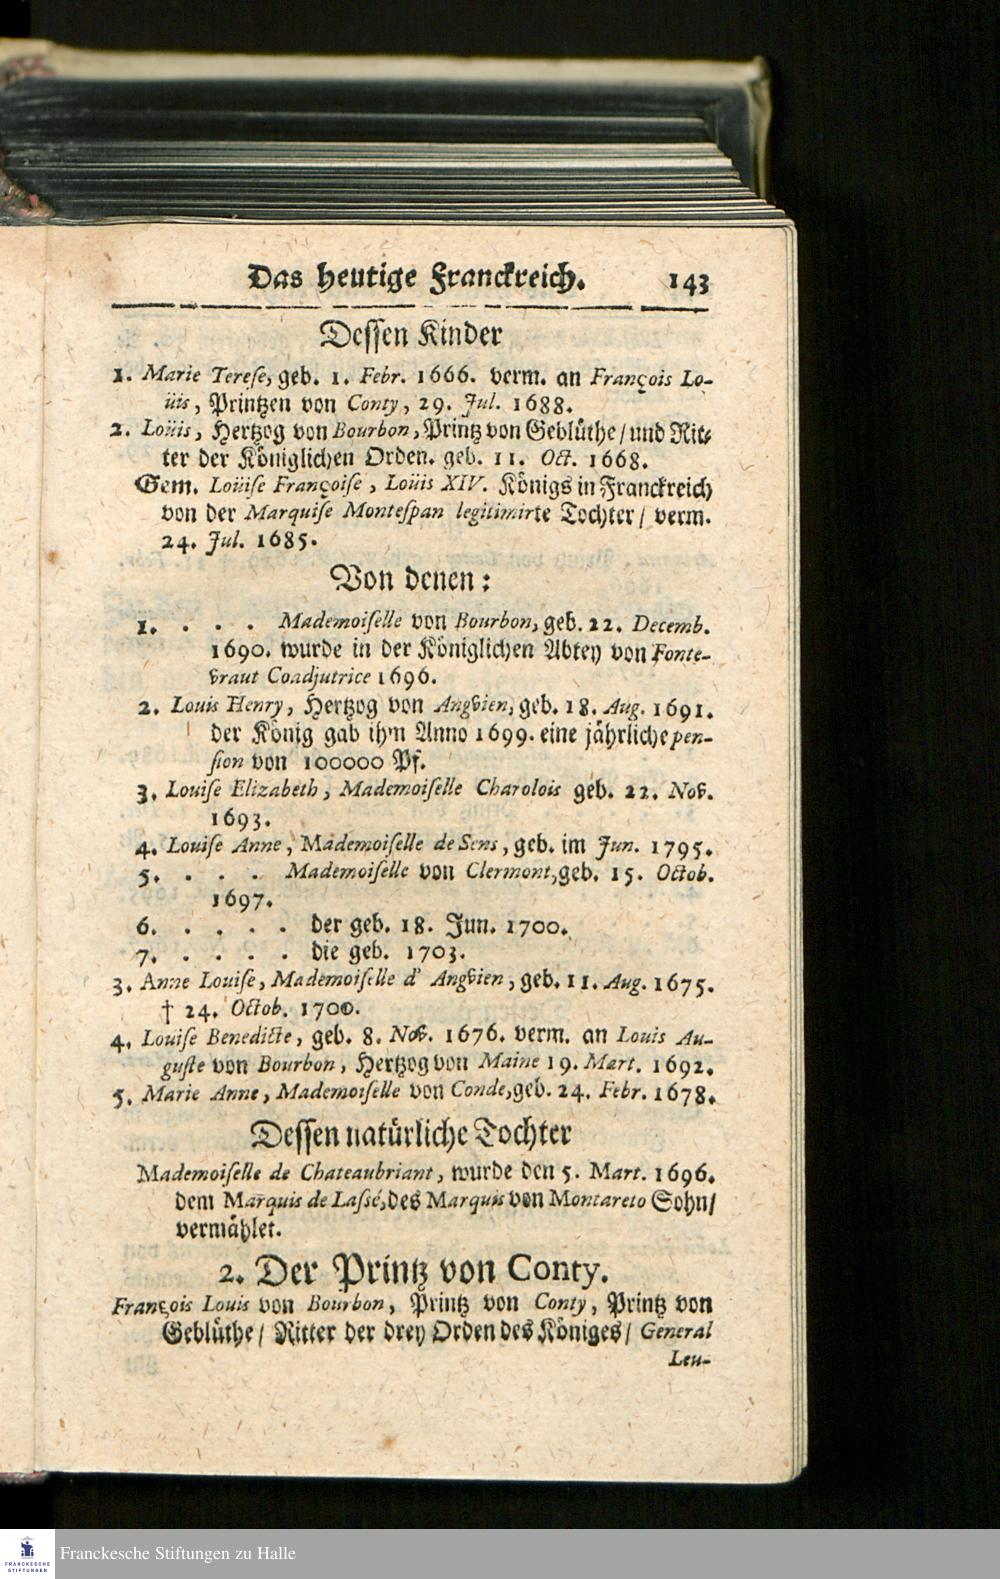 Das heutige Franckreich. 143
Dessen Kinder
1. Marie Terese, geb. 1. Febr. 1666. verm. an François Lo-
üis, Printzen von Conty, 29. Jul. 1688.
2. Loüis, Hertzog von Bourbon, Printz von Geblüthe/ und Rit-
ter der Königlichen Orden. geb. 11. Oct. 1668.
Gem. Loüise Françoise, Loüis XIV. Königs in Franckreich
von der Marquise Montespan legitimirte Tochter/ verm.
24. Jul. 1685.
Von denen:
1. . . . Mademoiselle von Bourbon, geb. 22. Decemb.
1690. wurde in der Königlichen Abtey von Fonte-
vraut Coadjutrice 1696.
2. Louis Henry, Hertzog von Angvien, geb. 18. Aug. 1691.
der König gab ihm Anno 1699. eine jährliche pen-
sion von 100000 Pf.
3. Louise Elizabeth, Mademoiselle Charolois geb. 22. Nov.
1693.
4. Louise Anne, Mademoiselle de Sens, geb. im Jun. 1795.
5. . . . Mademoiselle von Clermont, geb. 15. Octob.
1697.
6. . . . . der geb. 18. Jun. 1700.
7. . . . . die geb. 1703.
3. Anne Louise, Mademoiselle d' Angvien, geb. 11. Aug. 1675.
† 24. Octob. 1700.
4. Louise Benedicte, geb. 8. Nov. 1676. verm. an Louis Au-
guste von Bourbon, Hertzog von Maine 19. Mart. 1692.
5. Marie Anne, Mademoiselle von Conde, geb. 24. Febr. 1678.
Dessen natürliche Tochter
Mademoiselle de Chateaubriant, wurde den 5. Mart. 1696.
dem Marquis de Lassé, des Marquis von Montareto Sohn/
vermählet.
2. Der Printz von Conty.
François Louis von Bourbon, Printz von Conty, Printz von
Geblüthe/ Ritter der drey Orden des Königes/ General
Leu-
FRANCKESCHE STIFTUNGEN
Franckesche Stiftungen zu Halle